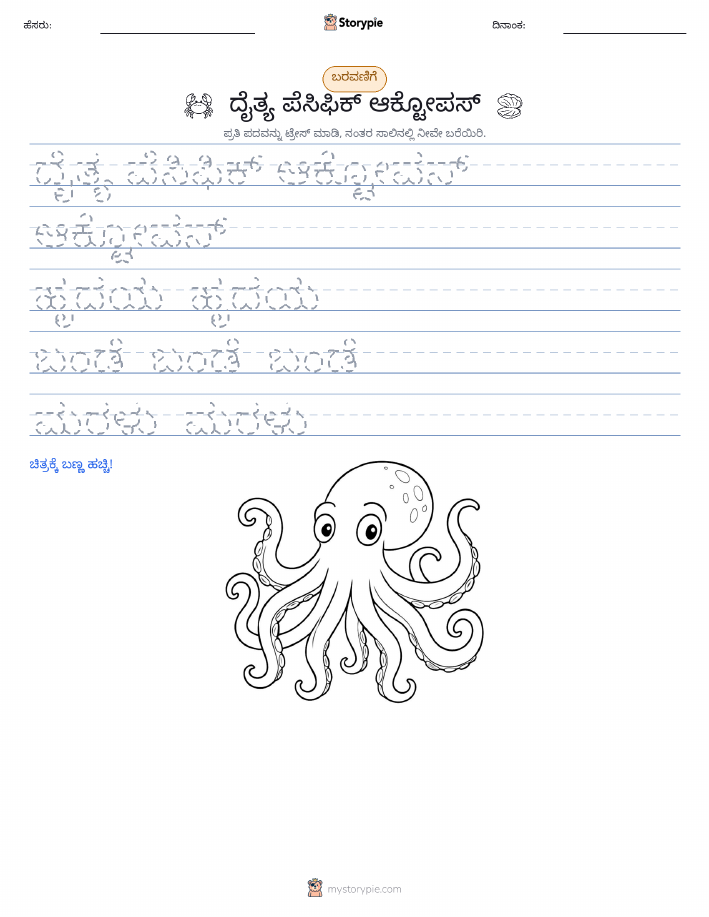 ಹೆಸರು:
Storypie
ದಿನಾಂಕ:
ಬರವಣಿಗೆ
ದೈತ್ಯ ಪೆಸಿಫಿಕ್ ಆಕ್ಟೋಪಸ್
ಪ್ರತಿ ಪದವನ್ನು ಟ್ರೇಸ್ ಮಾಡಿ, ನಂತರ ಸಾಲಿನಲ್ಲಿ ನೀವೇ ಬರೆಯಿರಿ.
ದೈತ್ಯ ಪೆಸಿಫಿಕ್ ಆಕ್ಟೋಪಸ್
ಆಕ್ಟೋಪಸ್
ಹೃದಯ ಹೃದಯ
ಬಂಡೆ ಬಂಡೆ ಬಂಡೆ
ಮರಳು ಮರಳು
ಚಿತ್ರಕ್ಕೆ ಬಣ್ಣ ಹಚ್ಚಿ!
mystorypie.com